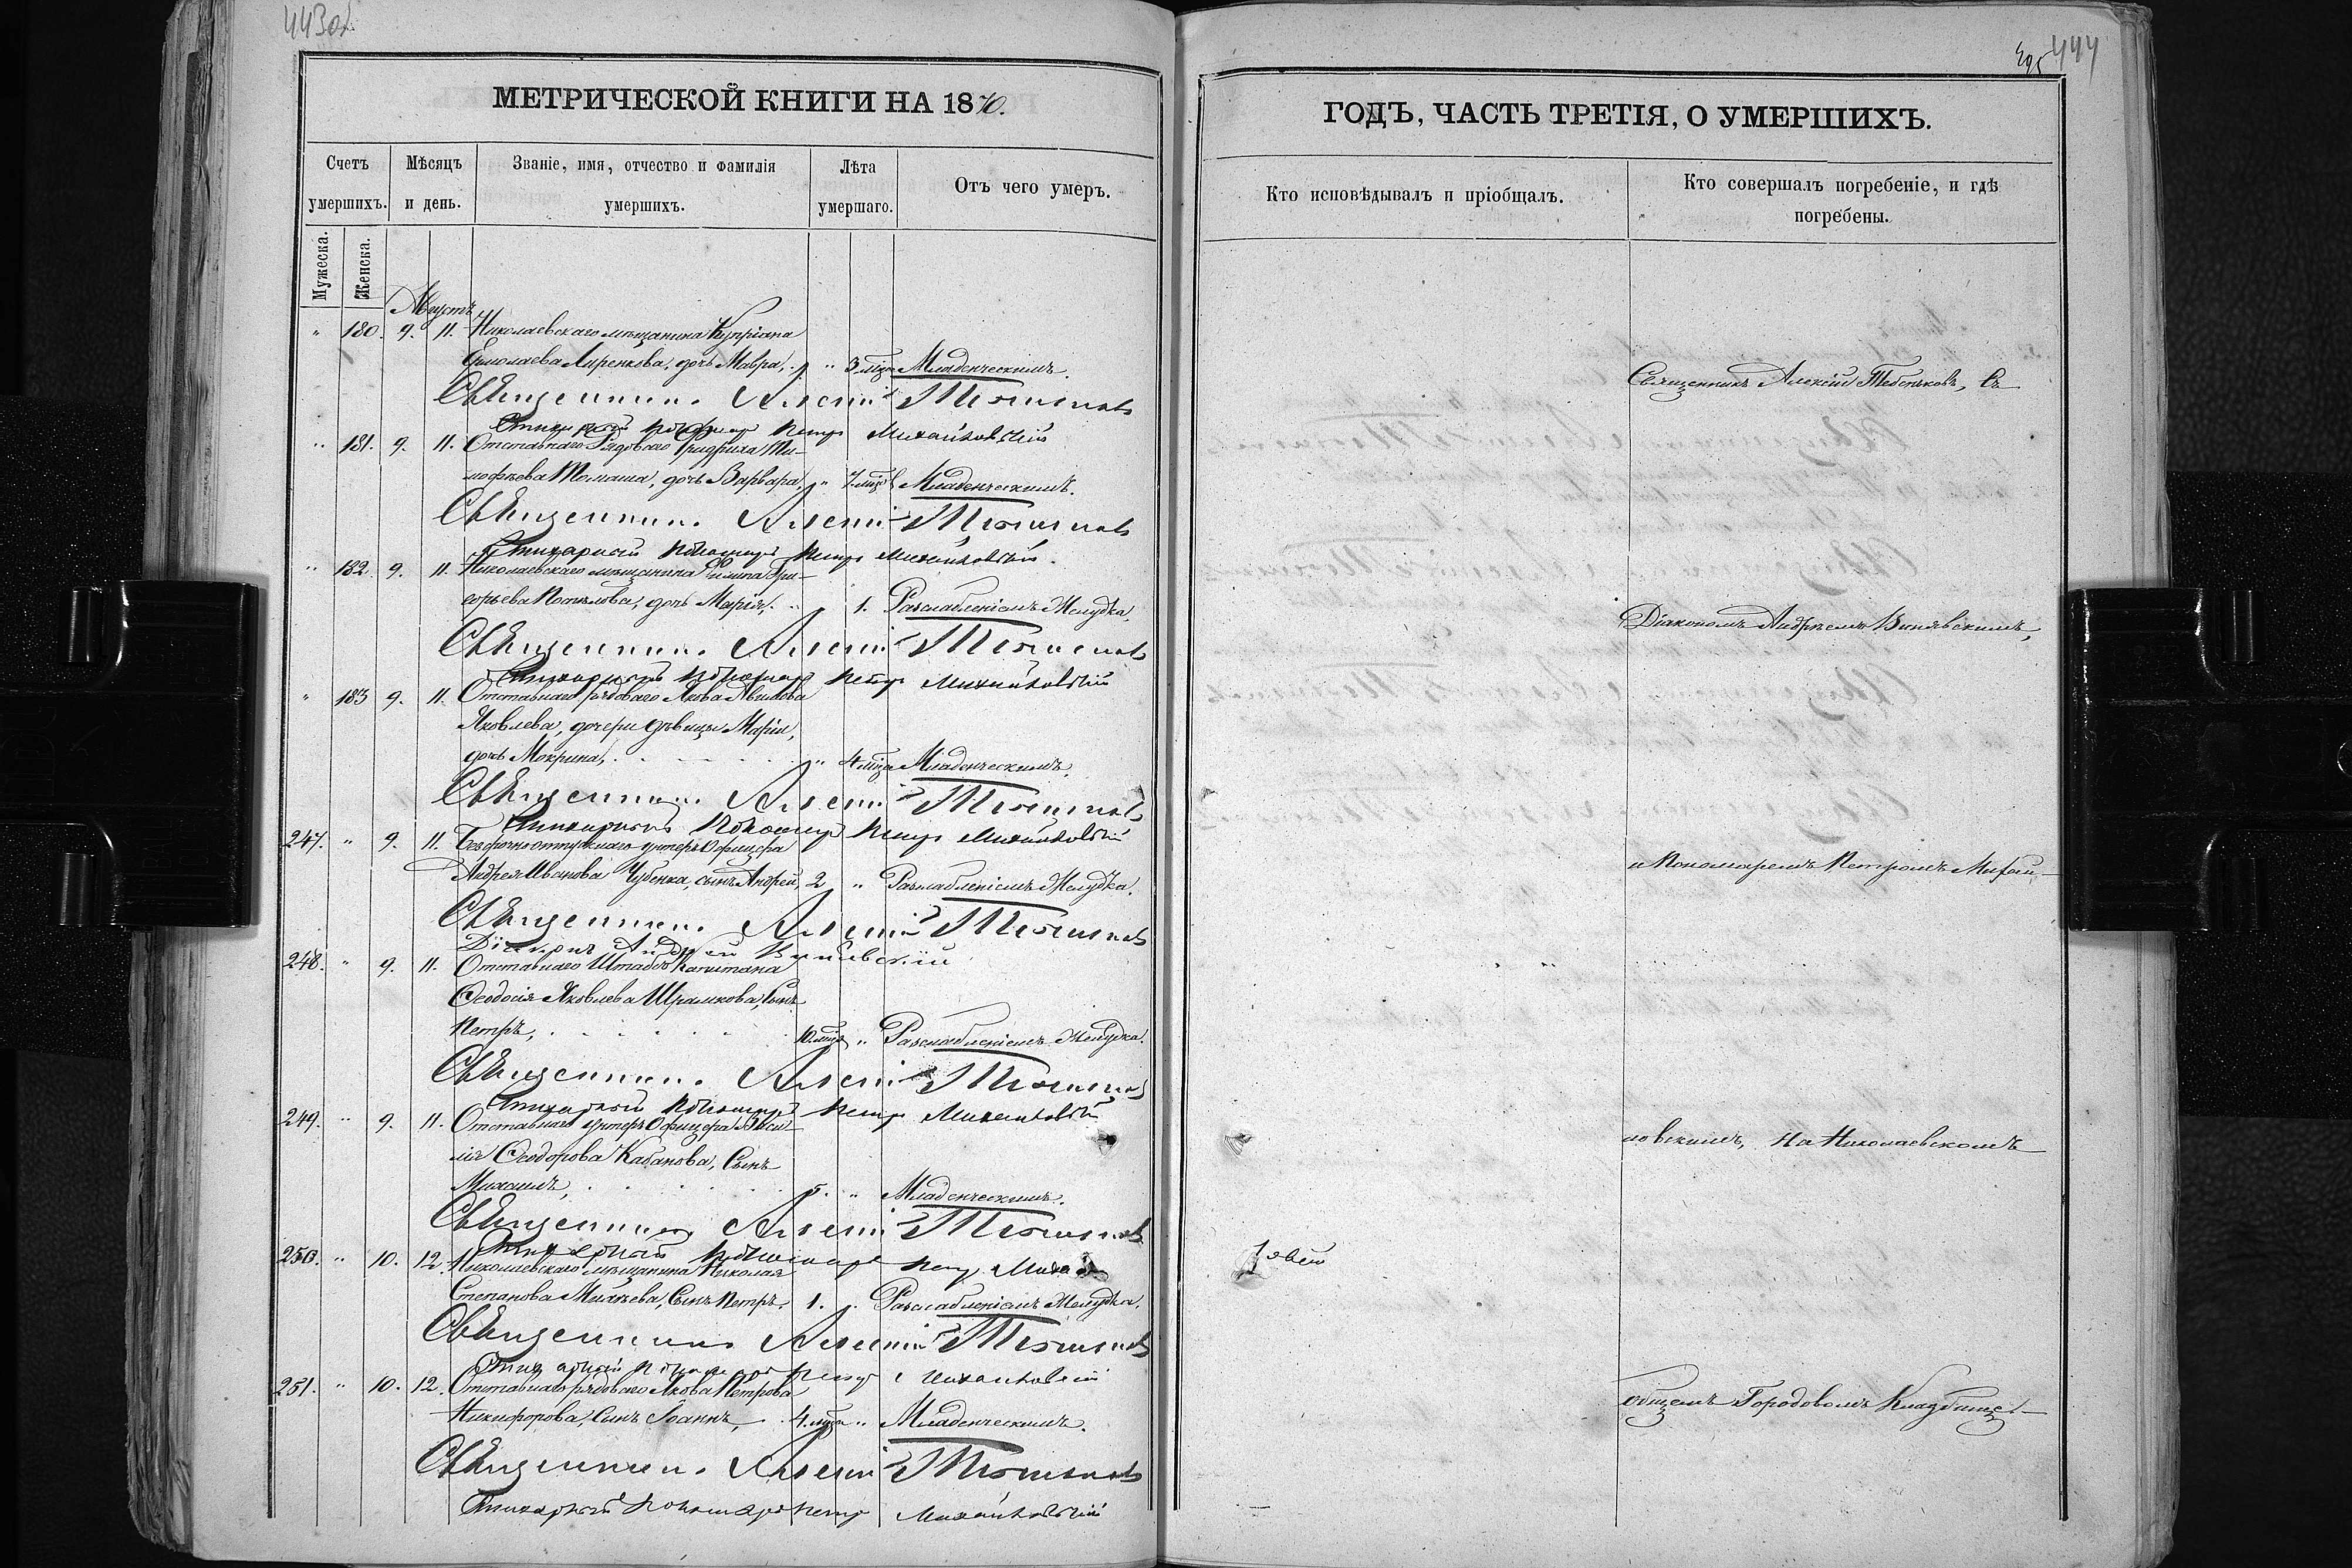 443об.
МЕТРИЧЕСКОЙ КНИГИ НА 1870.
Счетъ умершихъ.
Мѣсяцъ и день.
Званіе, имя, отчество и фамилія умершихъ.
Лѣта умершаго.
Отъ чего умеръ.
Мужеска.
Женска.
Августъ
" 180. 9. 11. Николаевскаго мѣщанина Купріана
Ермолаева Лиренкова, дочь Мавра, " 3 мѣся Младенческимъ.
Священникъ Алексій
Стихарный Пономарь Петръ Михайловскій
" 181. 9. 11. Отставнаго Рядоваго Фридриха Ти-
мофѣева Томаша, дочь Варвара, " 7 мѣся Младенческимъ.
Священникъ Алексій
Стихарный Пономарь Петръ Михайловскій.
" 182 9. 11. Николаевскаго мѣщанина Филипа Гри-
горьева Поспѣлова, дочь Марія, " 1. Разслабленіемъ Желудка.
Священникъ Алексій
Стихарный Пономарь Петръ Михайловскій
" 183 9. 11. Отставнаго рядоваго Якова
Яковлева, дочери дѣвицы Маріи,
дочь Мокрина, " 4 мѣся Младенческимъ.
Священникъ Алексій
Стихарный Пономарь Петръ Михайловскій
247. " 9. 11. Безсрочноотпускнаго унтеръ Офицера
Андрея Иванова Чубенка, сынъ Андрей, 2 " Разслабленіемъ Желудка.
Священникъ Алексій
Діаконъ Андрей
248. " 9. 11. Отставнаго Штабсъ Капитана
Ѳеодосія Яковлева Шрамкова, Сынъ
Петръ, 10 мѣся " Разслабленіемъ Желудка.
Священникъ Алексій
Стихарный Пономарь Петръ Михайловскій
249. " 9. 11. Отставнаго унтеръ Офицера Васи-
лія Ѳеодорова Кабанова, Сынъ
Михаилъ, 5. " Младенческимъ.
Священникъ Алексій
Стихарный Пономарь Петръ
250. " 10. 12. Николаевскаго мѣщанина Николая
Степанова Сынъ Петръ, 1. " Разслабленіемъ Желудка.
Священникъ Алексій
Стихарный Пономарь Петръ Михайловскій
251. " 10. 12. Отставнаго рядоваго Якова Петрова
Никифорова, Сынъ Іоаннъ, 4 мѣся " Младенческимъ.
Священникъ Алексій
Стихарный Пономарь Петръ Михайловскій
444
ГОДЪ, ЧАСТЬ ТРЕТІЯ, О УМЕРШИХЪ.
Кто исповѣдывалъ и пріобщалъ.
Кто совершалъ погребеніе, и гдѣ погребены.
Священникъ Алексій Съ
Діакономъ Андреемъ
и Пономаремъ Петромъ Михай-
ловскимъ, на Николаевскомъ
общемъ Городовомъ Кладбищѣ